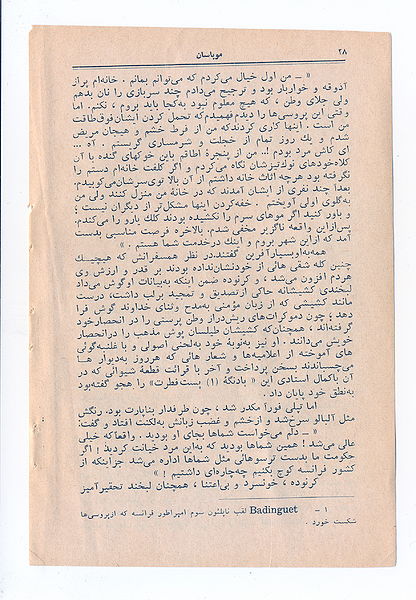 ۲۸
موپاسان
« ــ من اول خیال می‌کردم که می‌توانم بمانم . خانه‌ام پراز
آذوقه و خواربار بود و ترجیح می‌دادم چند سربازی را نان بدهم
ولی جلای وطن ، که هیچ معلوم نبود به‌کجا باید بروم ، نکنم. اما
وقتی این پروسی‌ها را دیدم فهمیدم‌که تحمل کردن ایشان‌فوق‌طاقت
من است . اینها کاری کردندکه من از فرط خشم و هیجان مریض
شدم و یك روز تمام از خجلت و شرمساری گریستم . آه ...
ای کاش مرد بودم !.. من از پنجرهٔ اطاقم باین خوکهای گنده با آن
کلاه‌خودهای نوك‌تیزشان نگاه می‌کردم و اگر کلفت خانه‌ام دستم را
نگرفته بود هرچه اثاث خانه داشتم از آن بالا توی‌سرشان‌می‌کوبیدم.
بعداً چند نفری از ایشان آمدند که در خانهٔ من منزل کنند ولی من
به‌گلوی اولی آویختم . خفه‌کردن اینها مشکل‌تر از دیگران نیست ؛
و باور کنید اگر موهای سرم را نکشیده بودند کلك یارو را می‌کندم.
پس‌ازاین واقعه ناگزیر مخفی شدم. بالاخره فرصت مناسبی بدست
آمد که ازاین شهر بروم و اینك درخدمت شما هستم . »
همه‌به‌اوبسیارآفرین گفتند.در نظر همسفرانش که هیچیك
چنین کله شقی هائی از خودنشان‌نداده بودند بر قدر و ارزش وی
هردم افزون می‌شد ، و کرنوده ضمن اینکه به‌بیانات اوگوش می‌داد
لبخندی کشیشانه حاکی ازتصدیق و تمجید برلب داشت، درست
مانند کشیشی که از زبان مؤمنی به‌مدح وثنای خداوند گوش فرا
دهد ؛ چون دموکرات‌های ریش‌دراز وطن پرستی را در انحصارخود
گرفته‌اند ، همچنان‌که کشیشان طیلسان پوش مذهب را درانحصار
خویش می‌دانند . او نیز به‌نوبهٔ خود به‌لحنی اصولی و با غلنبه‌گوئی
های آموخته از اعلامیه‌ها و شعار هائی که هرروز به‌دیوار هـا
می‌چسباندند بسخن پرداخت و آخر با قرائت قطعهٔ شیوائی که در
آن باکمال استادی این « بادنگهٔ (۱) پست‌فطرت» را هجو گفته‌بود
به‌نطق خود پایان داد .
اما تپلی فوراً مکدر شد ، چون طرفدار بناپارت بود. رنگش
مثل آلبالو سرخ‌شد و ازخشم و غضب زبانش به‌لکنت افتاد و گفت:
« ــ دلم می‌خواست شماها بجای او بودید . واقعاکه خیلی
عالی می‌شد ! همین شماها بودید که به‌این مرد خیانت کردید ! اگر
حکومت ما بدست ترسوهائی مثل شماها اداره می‌شد جزاینکه از
کشور فرانسه کوچ بکنیم چه‌چاره‌ای داشتیم ! »
کرنوده ، خونسرد و بی‌اعتنا ، همچنان لبخند تحقیرآمیز
۱ ــ Badinguet لقب ناپلئون سوم امپراطور فرانسه که ازپروسی‌ها
شکست خورد .